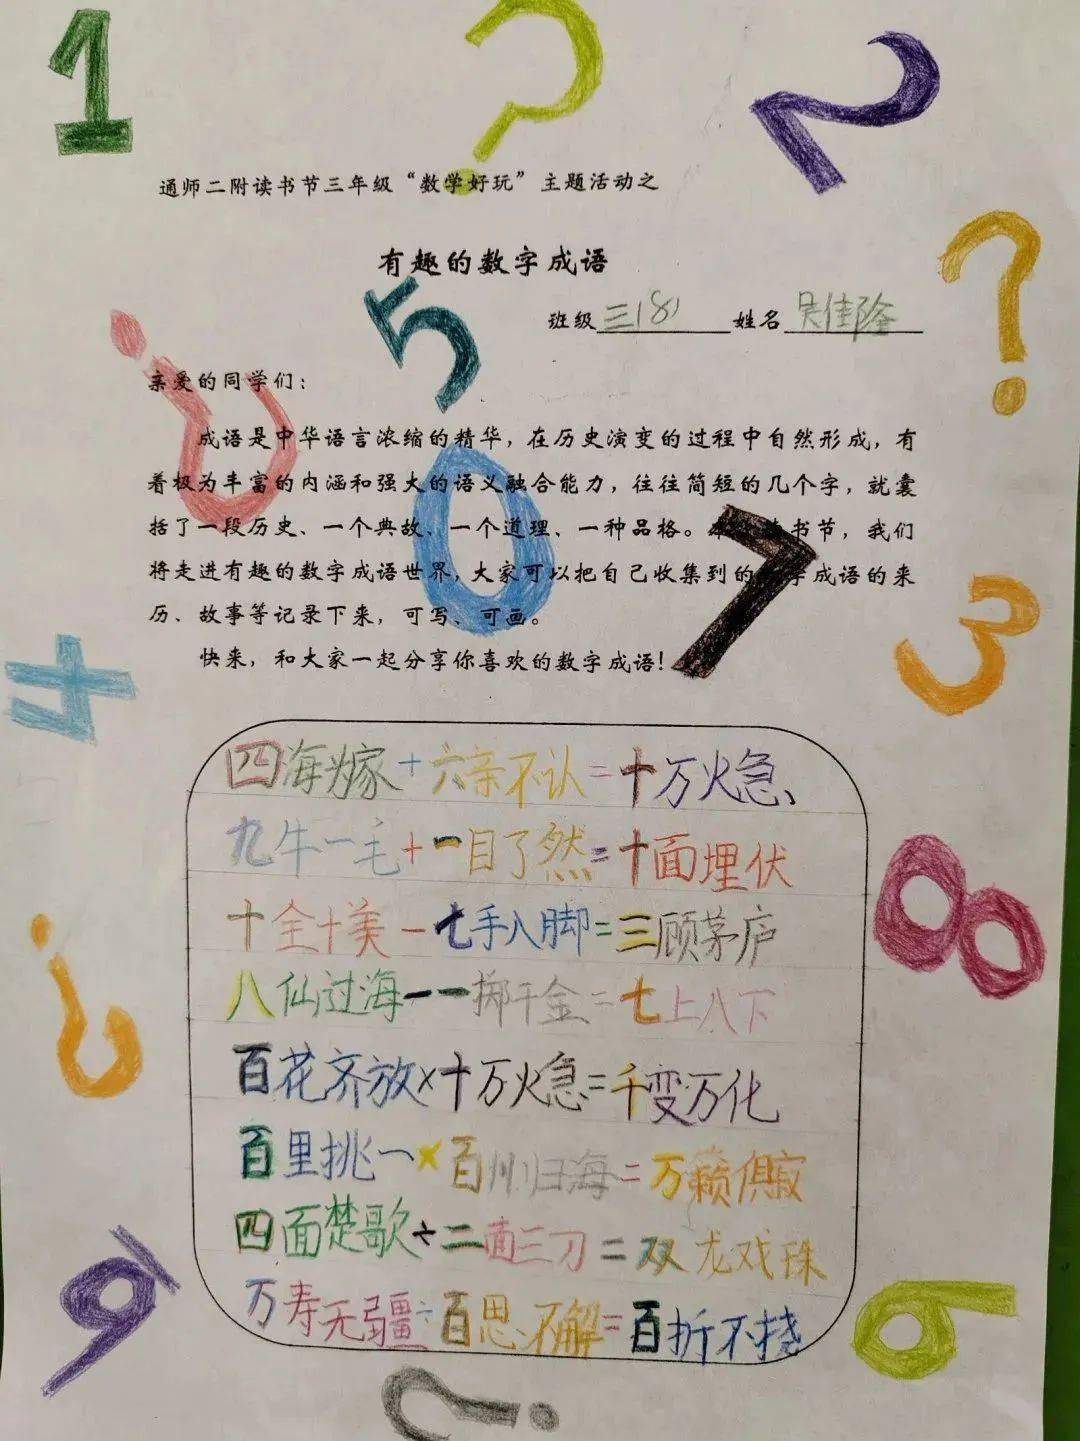 1 ? 2
通师二附读书节三年级“数学好玩”主题活动之
有趣的数字成语
班级三(8) 姓名吴佳隆
?
5
?
亲爱的同学们：
成语是中华语言浓缩的精华，在历史演变的过程中自然形成，有
着极为丰富的内涵和强大的语义融合能力，往往简短的几个字，就囊
括了一段历史、一个典故、一个道理、一种品格。本书节，我们
将走进有趣的数字成语世界，大家可以把自己收集到的字成语的来
历、故事等记录下来，可写、可画。
快来，和大家一起分享你喜欢的数字成语！
0
7
3
4
四海为家+六亲不认=十万火急
九牛一毛+一目了然=十面埋伏
十全十美-七手八脚=三顾茅庐
八仙过海-一掷千金=七上八下
百花齐放×十万火急=千变万化
百里挑一×百川归海=万籁俱寂
四面楚歌÷二面三刀=双龙戏珠
万寿无疆÷百思不解=百折不挠
8
?
9
6
?